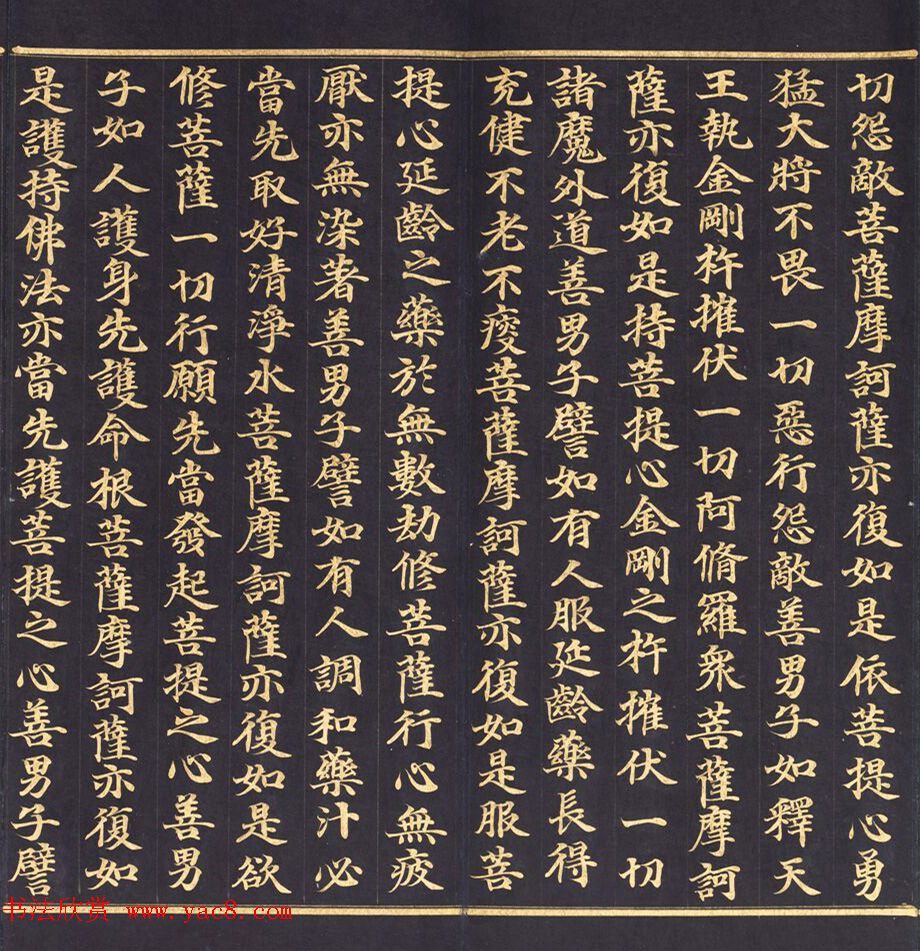 切怨敵菩薩摩訶薩亦復如是依菩提心勇
猛大將不畏一切惡行怨敵善男子如釋天
王執金剛杵摧伏一切阿脩羅衆菩薩摩訶
薩亦復如是持菩提心金剛之杵摧伏一切
諸魔外道善男子譬如有人服延齡藥長得
充健不老不瘦菩薩摩訶薩亦復如是服菩
提心延齡之藥於無數劫修菩薩行心無疲
厭亦無染著善男子譬如有人調和藥汁必
當先取好清淨水菩薩摩訶薩亦復如是欲
修菩薩一切行願先當發起菩提之心善男
子如人護身先護命根菩薩摩訶薩亦復如
是護持佛法亦當先護菩提之心善男子譬
书法欣赏 www.yac8.com